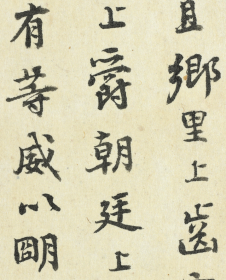 且鄉里上齒
上爵朝廷上
有等威以明